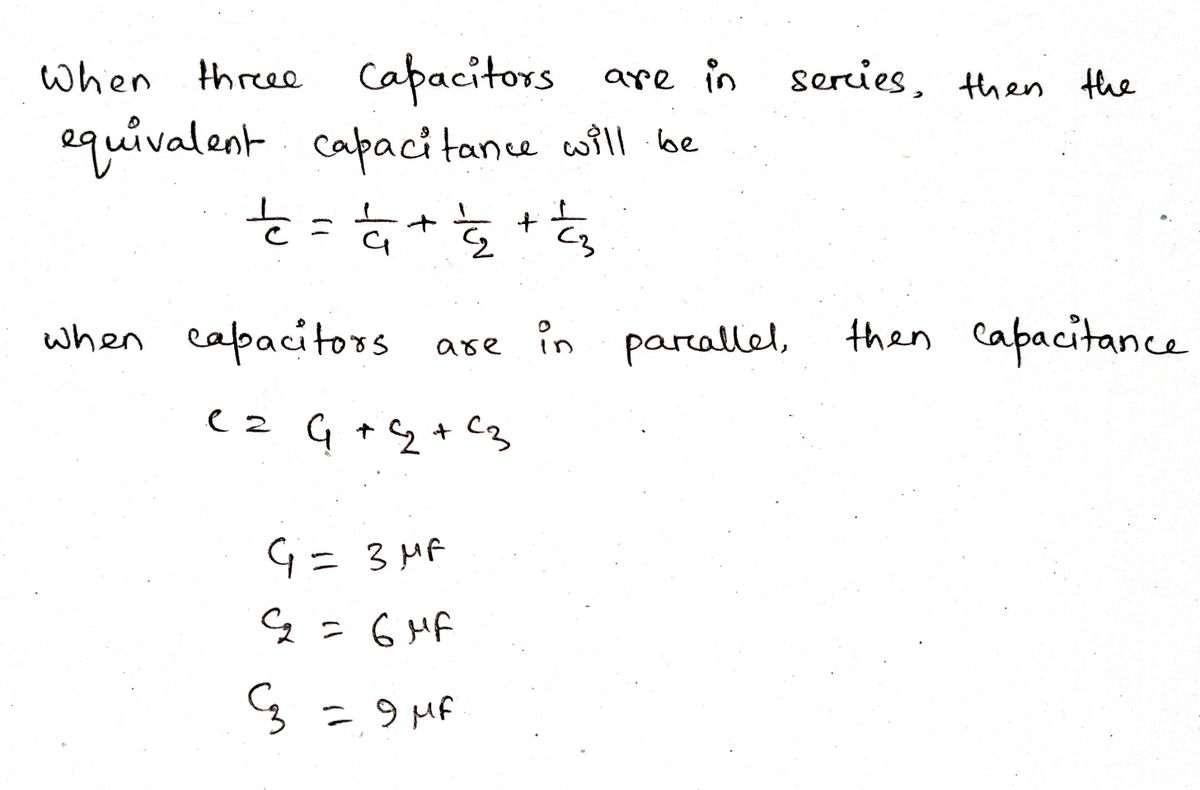 When three Capacitors are in series, then the
equivalent capacitance will be
1/C = 1/C₁ + 1/C₂ + 1/C₃
when capacitors are in parallel, then Capacitance
C = C₁ + C₂ + C₃
C₁ = 3 μF
C₂ = 6 μF
C₃ = 9 μF